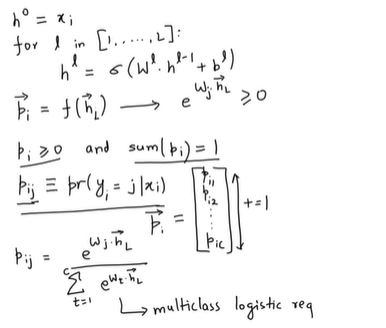 h⁰ = xᵢ
for l in [1, ....., L]:
hˡ = σ(Wˡ · hˡ⁻¹ + bˡ)
p⃗ᵢ = f(h⃗_L) ⟶ e^(Wⱼ·h⃗_L) ≥ 0
pᵢ ≥ 0 and sum(pᵢ) = 1
pᵢⱼ ≡ pr(yᵢ = j|xᵢ)
p⃗ᵢ = [pᵢ₁ pᵢ₂ ⋮ pᵢc] += 1
pᵢⱼ = e^(Wⱼ·h⃗_L) / Σ_(t=1)^c e^(Wt·h⃗_L)
↳ multiclass logistic reg